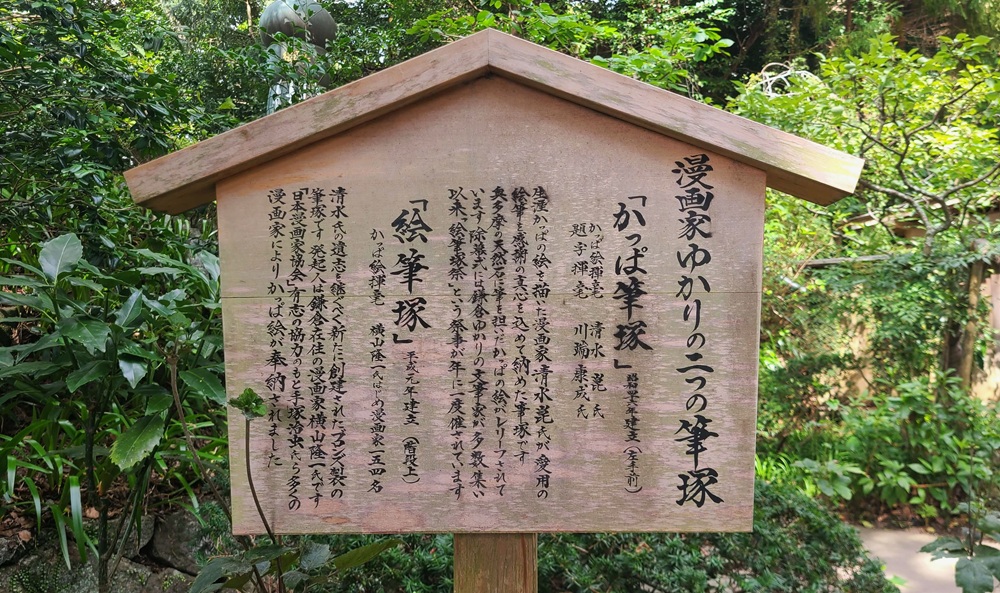 漫画家ゆかりの二つの筆塚
「かっぱ筆塚」 昭和四十六年建立(左手前)
かっぱ絵揮毫 清水 崑 氏
題字揮毫 川端 康成 氏
生涯かっぱの絵を描いた漫画家清水崑氏が愛用の
絵筆を感謝の真心を込めて納めた筆塚です
奥多摩の天然石に筆を担いだかっぱの絵がレリーフされて
います 除幕式には鎌倉ゆかりの文筆家が多数集い
以来、「絵筆塚祭」という祭事が年に一度催されています
「絵筆塚」 平成元年建立(階段上)
かっぱ絵揮毫 横山隆一氏はじめ漫画家一五四名
清水氏の遺志を継ぐべく新たに創建されたブロンズ製の
筆塚です 発起人は鎌倉在住の漫画家横山隆一氏です
「日本漫画家協会」有志の協力のもと手塚治虫氏ら多くの
漫画家によりかっぱ絵が奉納されました